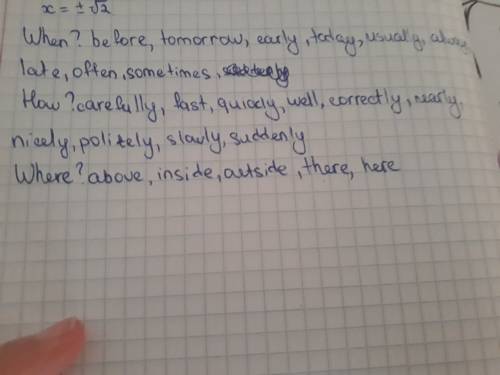 x = ± √2
When? before, tomorrow, early, today, usually,
late, often, sometimes,
How? carefully, fast, quickly, well, correctly,
nicely, politely, slowly, suddenly
Where? above, inside, outside, there, here